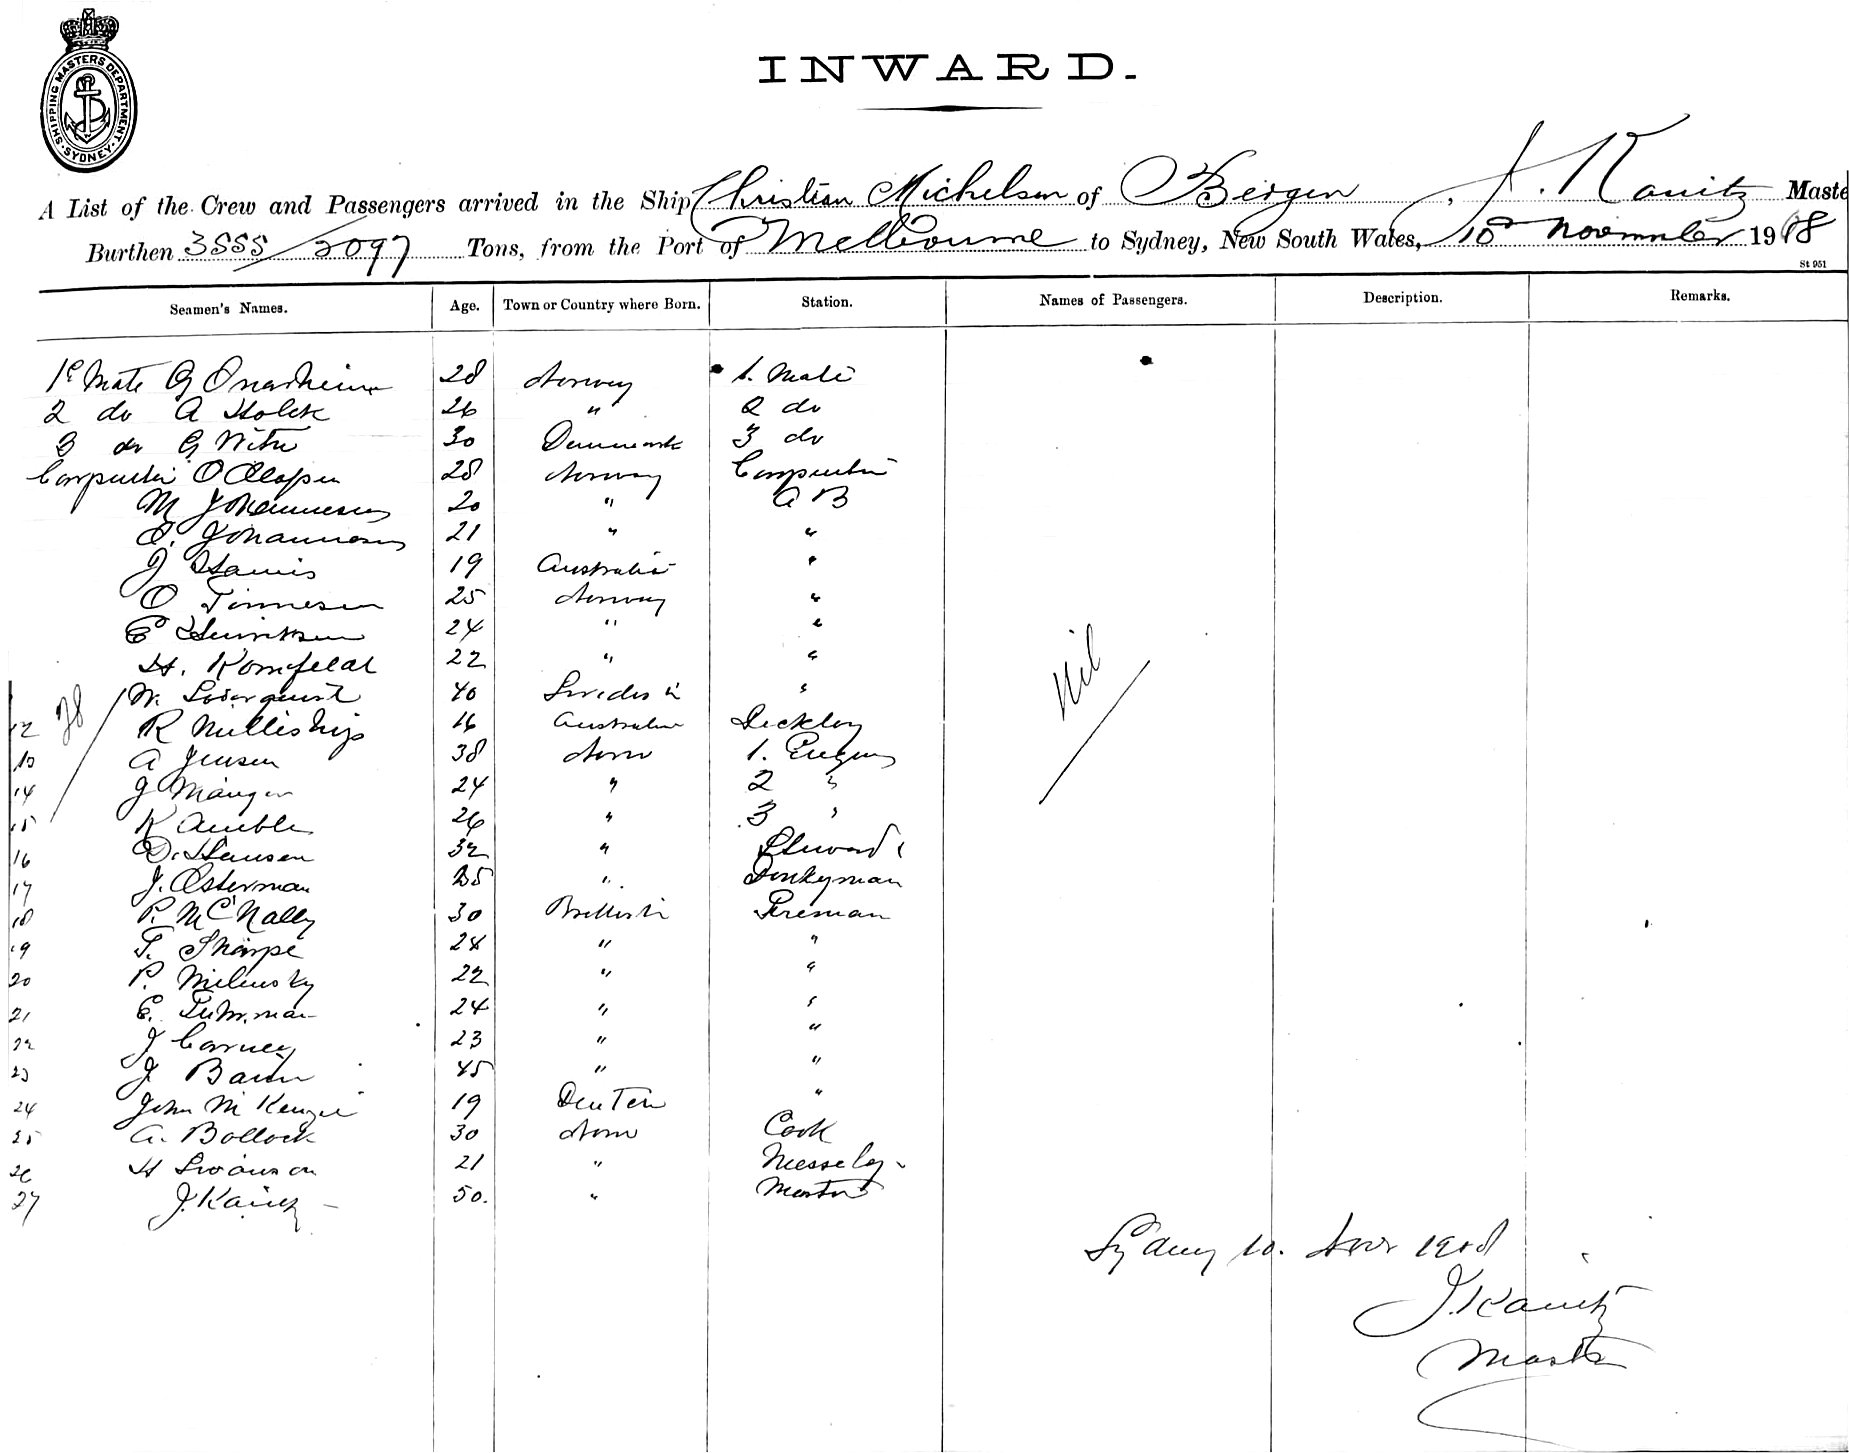 SHIPPING MASTERS DEPARTMENT. SYDNEY.
INWARD.
A List of the Crew and Passengers arrived in the Ship Christian Michelsen of Bergen, J. Kanitz Maste
Burthen 3555/2097 Tons, from the Port of Melbourne to Sydney, New South Wales, 10 November 1908
St 951
Seamen's Names. Age. Town or Country where Born. Station. Names of Passengers. Description. Remarks.
1e Mate G Onarheim 28 Norway 1. Mate
2 do A Holck 26 " 2 do
3 do G 30 Denmark 3 do
Carpenter O Olapsen 28 Norway Carpenter
M Johannesen 20 " A B
O. Johannesen 21 " "
J 19 Australia "
O Tonnesen 25 Norway "
E Henriksen 24 " "
H. Kornfeldt 22 " "
W. 40 "
12 R 16 Australia
13 A Jensen 38 Norw 1.
14 J Manger 24 " 2 "
15 K Amble 26 " 3 "
16 D. Hansen 32 " Steward
17 J. Osterman 25 " Donkyman
18 P. McNally 30 Fireman
19 T. Sharpe 24 " "
20 P. Milensky 22 " "
21 E. 24 " "
22 J Carney 23 " "
23 J 45 " "
24 John McKenzie 19 "
25 A. Bollock 30 Norw Cook
26 H Swanson 21 "
27 J. Kanitz 50. " Master
Nil
Sydney 10. Novr 1908
J. Kanitz
Master